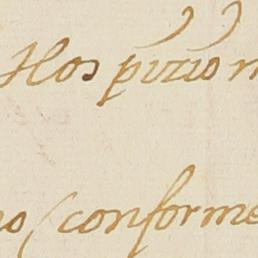 Hos pizio n
no (conforme